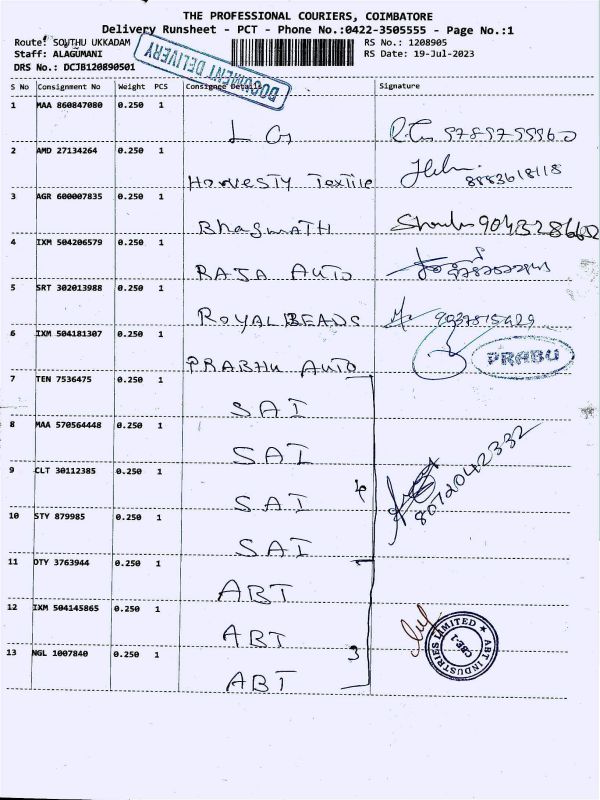 THE PROFESSIONAL COURIERS, COIMBATORE
Delivery Runsheet - PCT - Phone No.:0422-3505555 - Page No.:1
Route: SOUTHU UKKADAM
RS No.: 1208905
Staff: ALAGUMANI
RS Date: 19-Jul-2023
DRS No.: DCJB120890501
DOCUMENT DELIVERY
S No Consignment No Weight PCS Consignee Details Signature
1 MAA 860847080 0.250 1
LG
2 AMD 27134264 0.250 1
Harvesty Textile 8883618118
3 AGR 600007835 0.250 1
Bhagmath
4 IXM 504206579 0.250 1
RAJA AUTO
5 SRT 302013988 0.250 1
ROYAL BEADS
6 IXM 504181307 0.250 1
PRABHU AUTO
PRABU
7 TEN 7536475 0.250 1
SAI
8 MAA 570564448 0.250 1
SAI
8072042332
9 CLT 30112385 0.250 1
SAI 4
10 STY 879985 0.250 1
SAI
11 DTY 3763944 0.250 1
ABT
12 IXM 504145865 0.250 1
ABT
ABT INDUSTRIES LIMITED
CBE-1
13 NGL 1007840 0.250 1 3
ABT